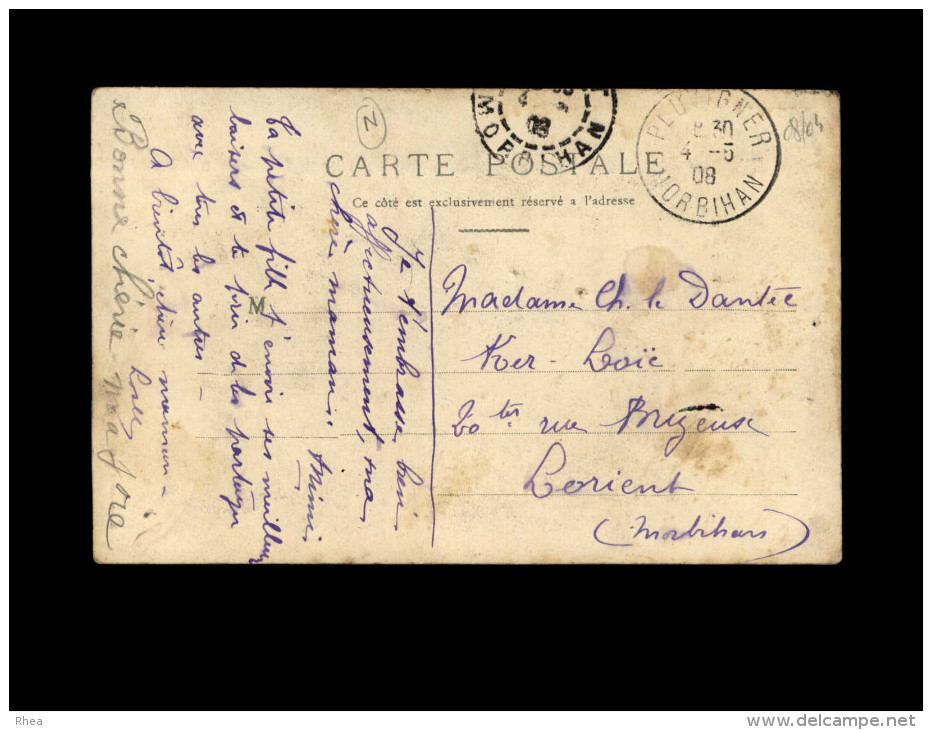 CARTE POSTALE
Ce côté est exclusivement réservé a l'adresse
PLUVIGNER
8 30
4 -5
08
MORBIHAN
MORBIHAN
08
2
08/04
M
Madame Ch. le Dantec
Ker-Loïc
20 ter rue Brizeux
Lorient
(Morbihan)
Je t'embrasse bien
affectueusement, ma
chère maman.
Mimi.
Ta petite fille t'envoie ses meilleurs
baisers et te prie de les partager
avec tous les autres -
A bientôt, chère maman -
Bonne chérie
Rhea
www.delcampe.net